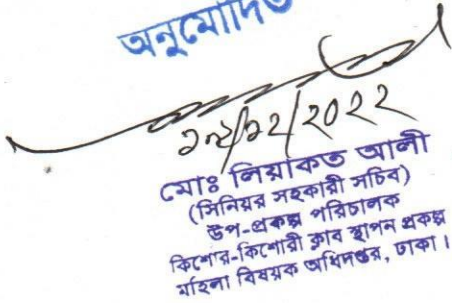 অনুমোদিত
১২/২০২২
মোঃ লিয়াকত আলী
(সিনিয়র সহকারী সচিব)
উপ-প্রকল্প পরিচালক
কিশোর-কিশোরী ক্লাব স্থাপন প্রকল্প
মহিলা বিষয়ক অধিদপ্তর, ঢাকা।